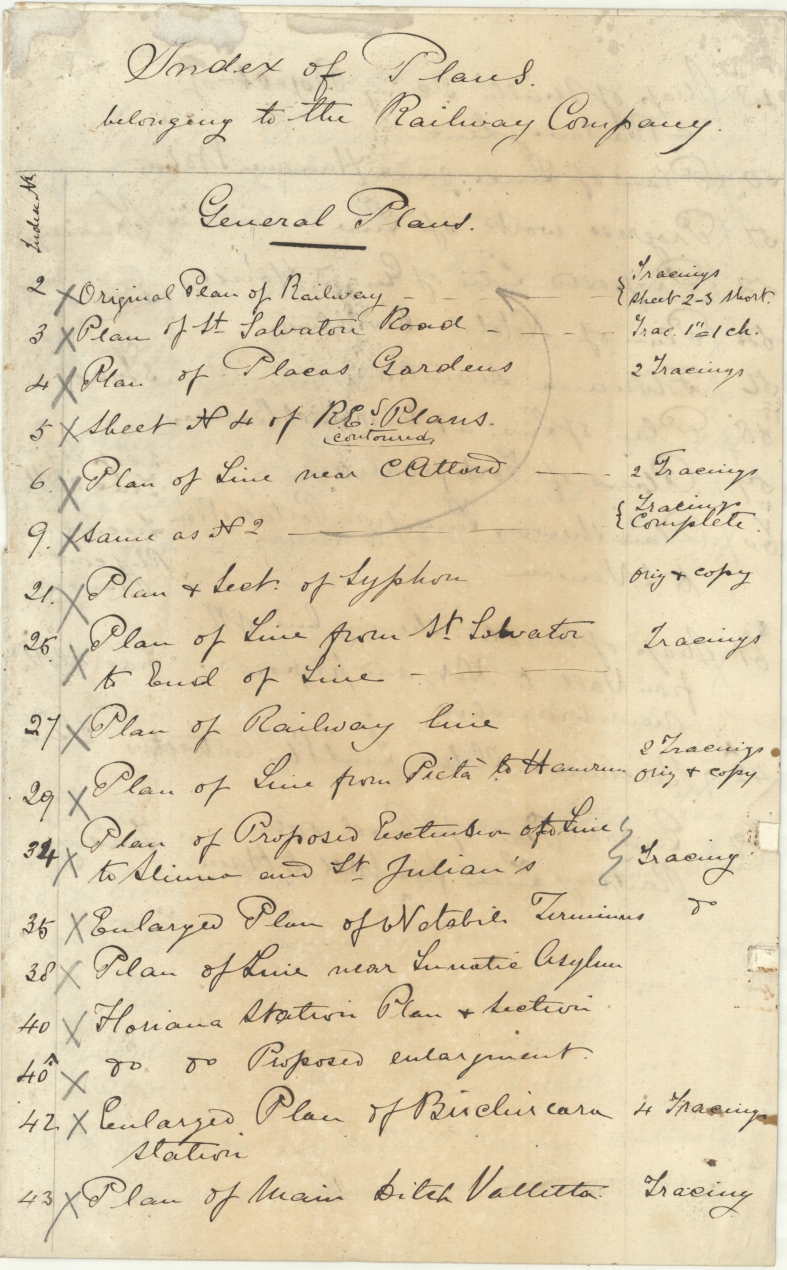 Index of Plans.
belonging to the Railway Company.
Index №
General Plans.
2 X Original Plan of Railway - - - { Tracings
Sheet 2-3 short.
3 X Plan of St Salvatori Road - - - Trac. 1"=1 ch.
4 X Plan of Placas Gardens 2 Tracings
5 X Sheet № 4 of R.E.s Plans.
(contoured)
6. X Plan of Line near C Attard — 2 Tracings
9. X Same as № 2 — { Tracings
Complete.
21. X Plan & Sect. of Syphon orig & copy
26. X Plan of Line from St Salvator Tracings
to End of Line - —
27 X Plan of Railway line 2 Tracings
29 X Plan of Line from Pietà to Hamrun orig & copy
34 X Plan of Proposed Exctention of Line }
to Sliema and St Julian's } Tracing
35 X Enlarged Plan of Notabile Terminus do
38 X Plan of Line near Lunatic Asylum
40 X Floriana Station Plan & Section
40A X do do Proposed enlargment.
42 X Enlarged Plan of Birchircara 4 Tracings
Station
43 X Plan of Main Ditch Valletta. Tracing